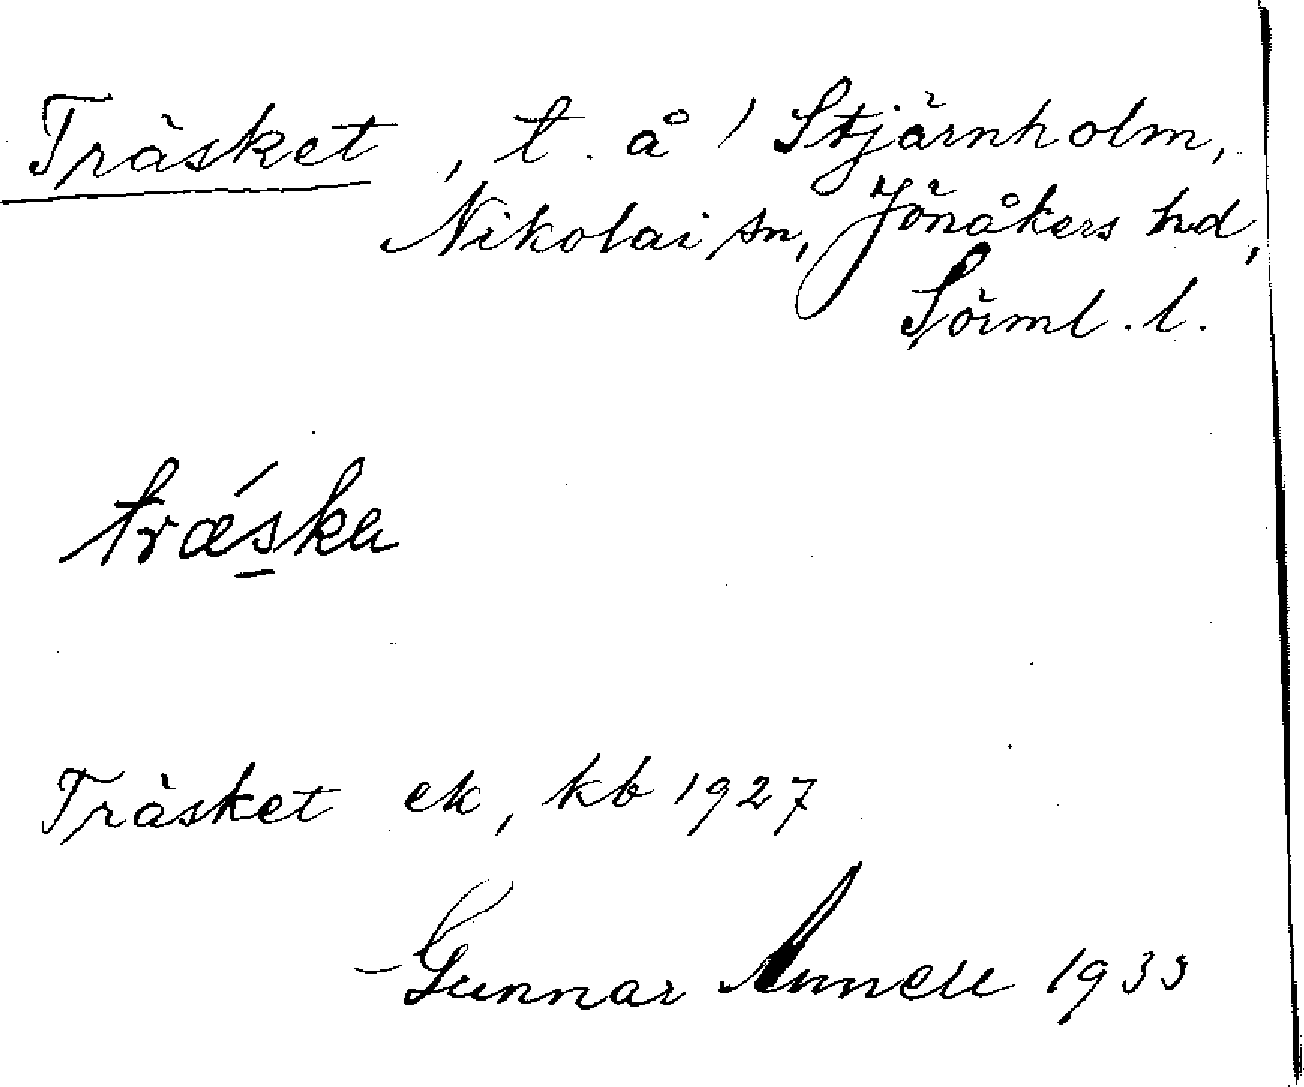 Träsket, t. å / Stjärnholm,
Nikolai sn, Jönåkers hd,
Sörml. l.
træ´ska
Träsket ek, kb 1927
Gunnar Annell 1933